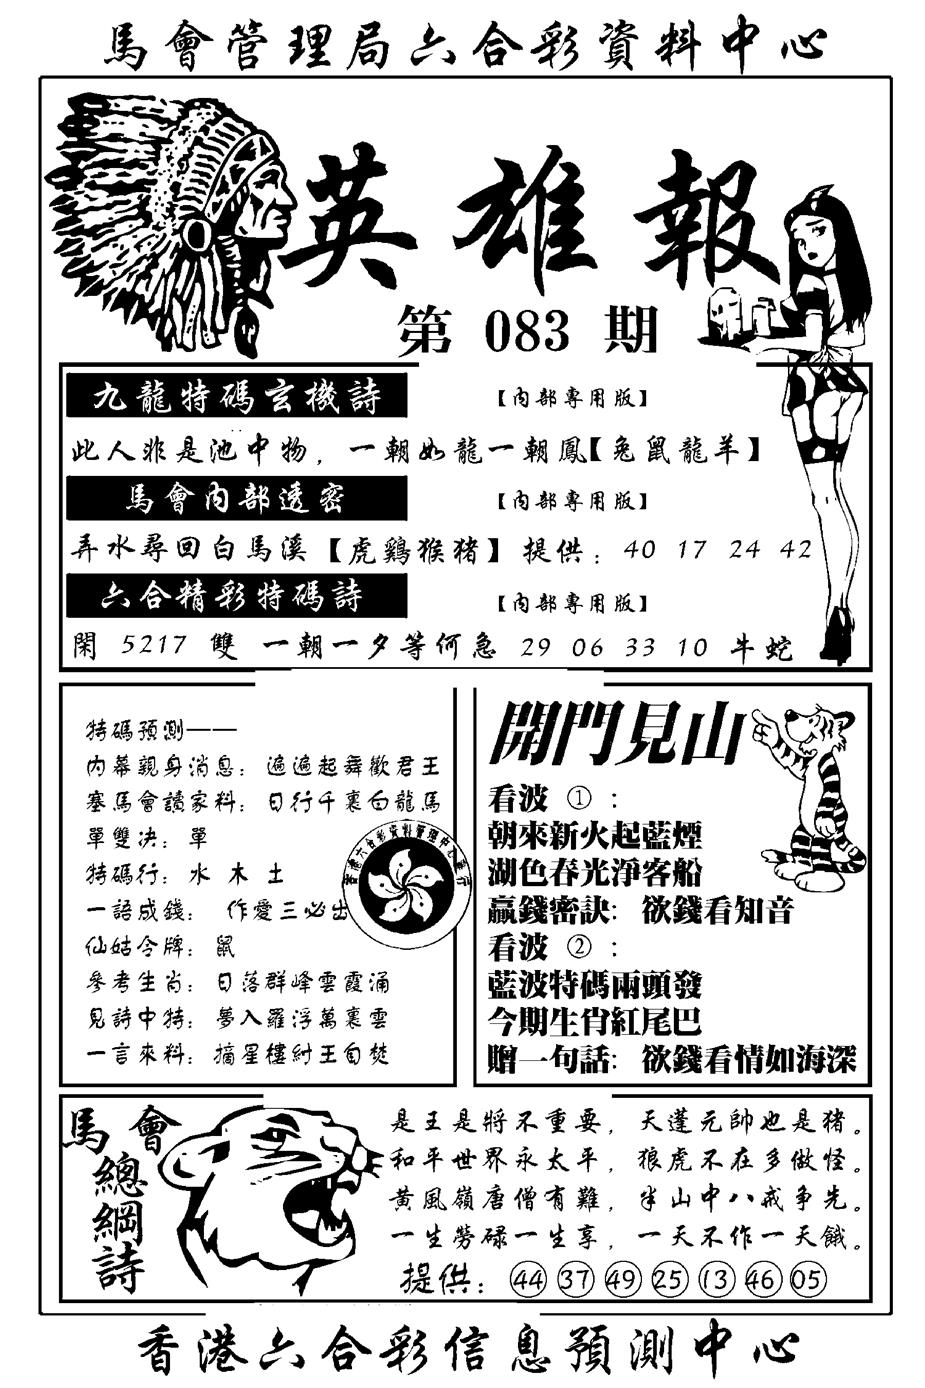 馬會管理局六合彩資料中心
英雄報
第 083 期
九龍特碼玄機詩 【內部專用版】
此人非是池中物，一朝如龍一朝鳳【兔鼠龍羊】
馬會內部透密 【內部專用版】
弄水尋回白馬溪【虎鷄猴猪】提供：40 17 24 42
六合精彩特碼詩 【內部專用版】
閑 5217 雙 一朝一夕等何急 29 06 33 10 牛蛇
特碼預測——
內幕親身消息：遍遍起舞歡君王
塞馬會讀家料：日行千裏白龍馬
單雙决：單
特碼行：水 木 土
一語成錢：作愛三必出
仙姑令牌：鼠
參考生肖：日落群峰雲霞涌
見詩中特：夢入羅浮萬裏雲
一言來料：摘星樓紂王自焚
香港六合彩資料管理中心發行
開門見山
看波 ①：
朝來新火起藍煙
湖色春光淨客船
贏錢密訣：欲錢看知音
看波 ②：
藍波特碼兩頭發
今期生肖紅尾巴
贈一句話：欲錢看情如海深
馬會
總綱詩
是王是將不重要，天蓬元帥也是猪。
和平世界永太平，狼虎不在多做怪。
黄風嶺唐僧有難，半山中八戒争先。
一生勞碌一生享，一天不作一天餓。
提供：44 37 49 25 13 46 05
香港六合彩信息預測中心